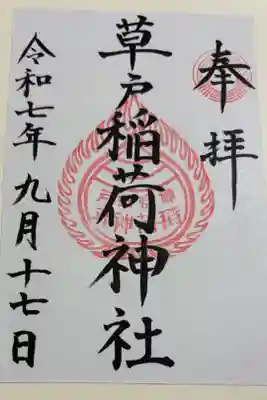 奉拝
草戸稲荷神社
令和七年九月十七日